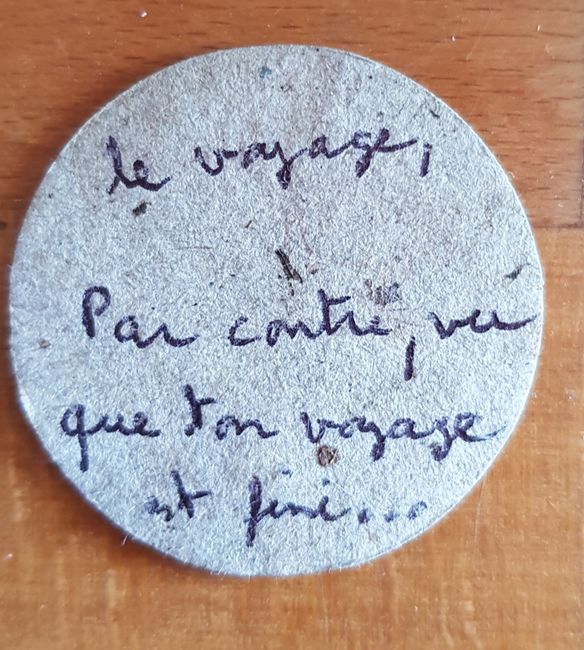 le voyage,
Par contre, vu
que ton voyage
est fini...